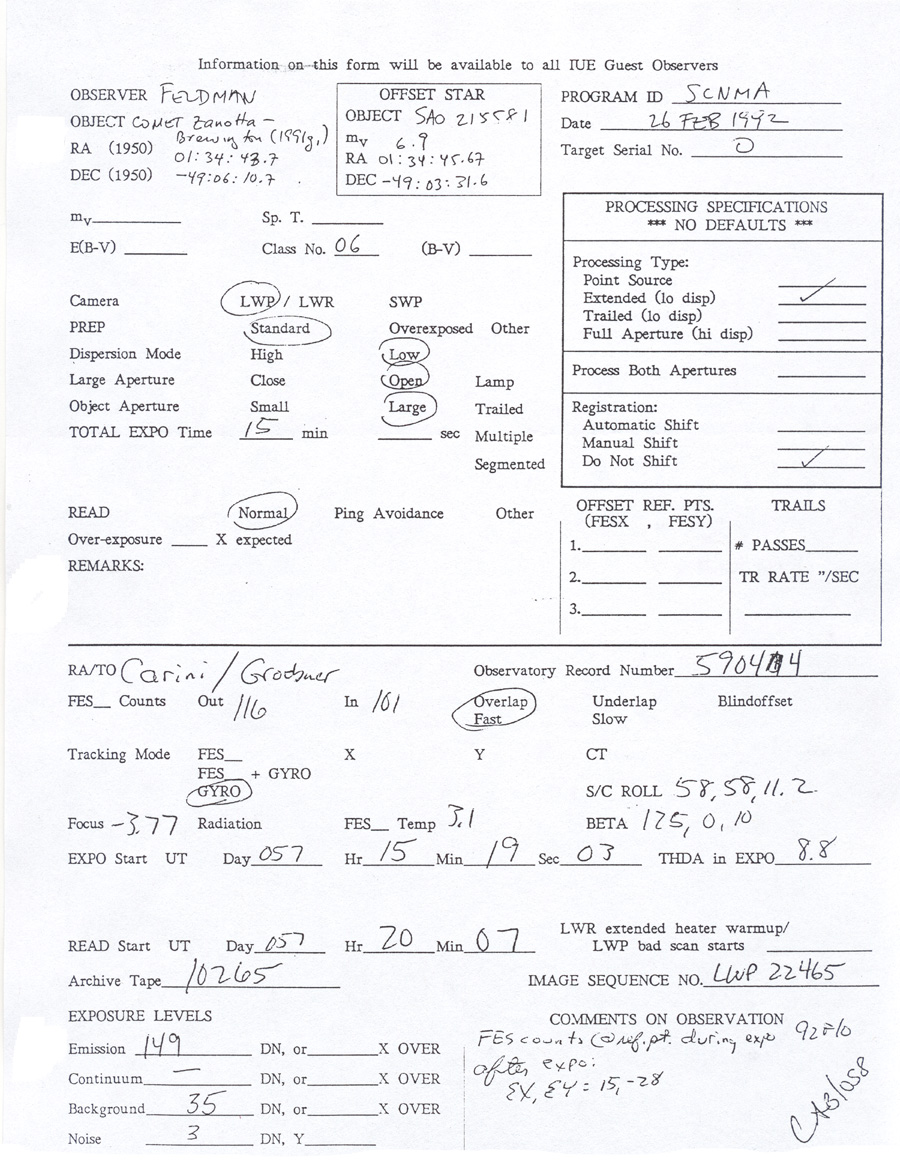 Information on this form will be available to all IUE Guest Observers
OBSERVER FELDMAN
OBJECT COMET Zanotta -
Brewington (1991g1)
RA (1950) 01:34:43.7
DEC (1950) -49:06:10.7
OFFSET STAR
OBJECT SAO 215581
mv 6.9
RA 01:34:45.67
DEC -49:03:31.6
PROGRAM ID SCNMA
Date 26 FEB 1992
Target Serial No. 0
mv Sp. T.
E(B-V) Class No. 06 (B-V)
Camera LWP / LWR SWP
PREP Standard Overexposed Other
Dispersion Mode High Low
Large Aperture Close Open Lamp
Object Aperture Small Large Trailed
TOTAL EXPO Time 15 min sec Multiple
Segmented
PROCESSING SPECIFICATIONS
*** NO DEFAULTS ***
Processing Type:
Point Source
Extended (lo disp) ✓
Trailed (lo disp)
Full Aperture (hi disp)
Process Both Apertures
Registration:
Automatic Shift
Manual Shift
Do Not Shift ✓
READ Normal Ping Avoidance Other
Over-exposure X expected
REMARKS:
OFFSET REF. PTS.
(FESX , FESY)
1.
2.
3.
TRAILS
# PASSES
TR RATE "/SEC
RA/TO Carini/ Observatory Record Number
FES Counts Out 116 In 101 Overlap Underlap Blindoffset
Fast Slow
Tracking Mode FES X Y CT
FES + GYRO
GYRO S/C ROLL 58, 58, 11.2
Focus -3.77 Radiation FES Temp 3.1 BETA 125, 0, 10
EXPO Start UT Day 057 Hr 15 Min 19 Sec 03 THDA in EXPO 8.8
LWR extended heater warmup/
READ Start UT Day 057 Hr 20 Min 07 LWP bad scan starts
Archive Tape 10265 IMAGE SEQUENCE NO. LWP 22465
EXPOSURE LEVELS
Emission 149 DN, or X OVER
Continuum — DN, or X OVER
Background 35 DN, or X OVER
Noise 3 DN, Y
COMMENTS ON OBSERVATION
FES counts @ ref. pt. during expo 92 F/O
after expo:
EX, EY = 15, -28
CAB/058